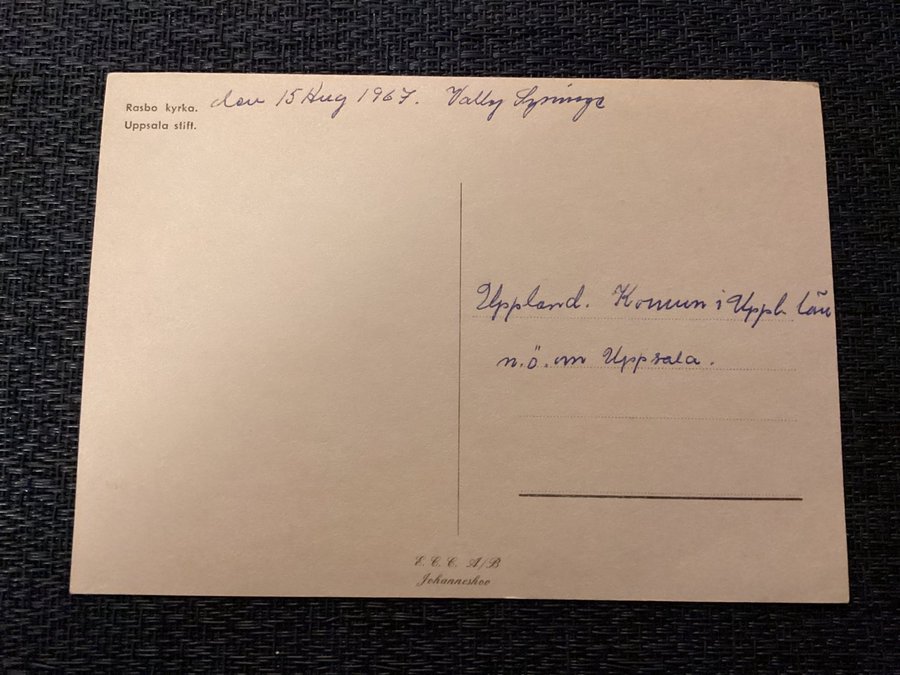 Rasbo kyrka. den 15 Aug 1967. Vally
Uppsala stift.
Uppland. Komun i Uppl. län
n.ö. om Uppsala.
E. C. C. A/B
Johanneshov